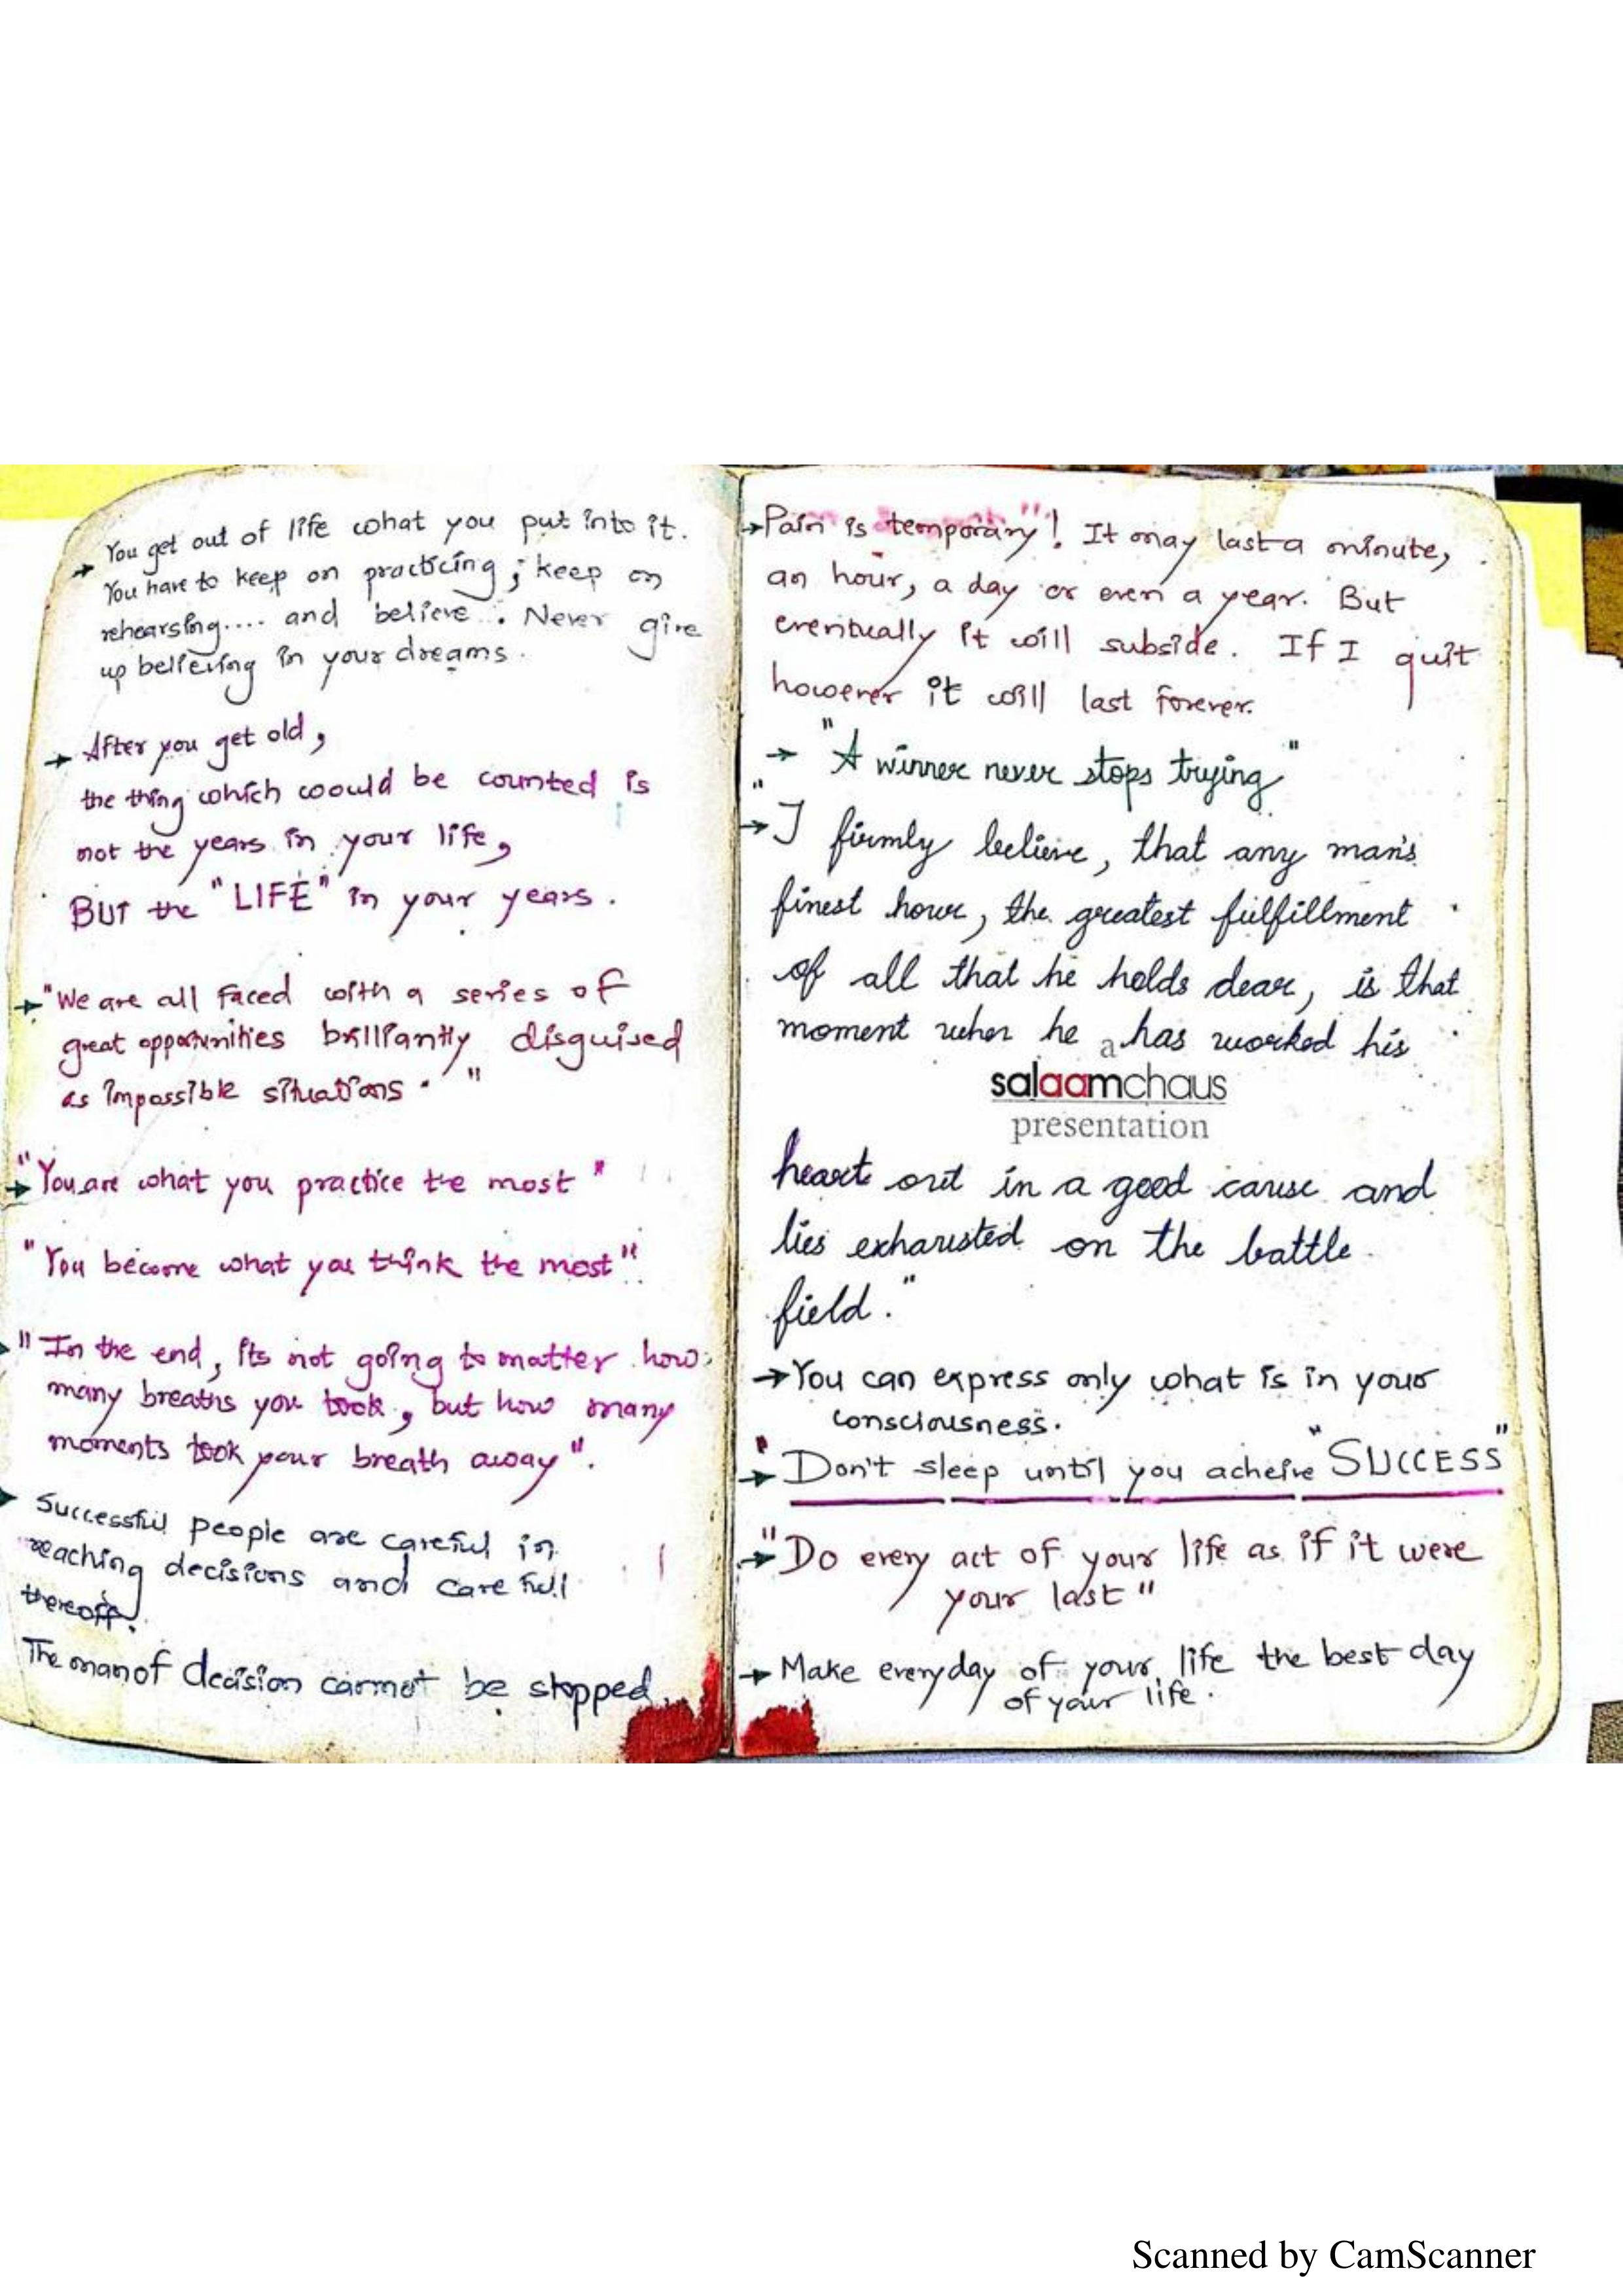 → You get out of life what you put into it.
You have to keep on practicing; keep on
rehearsing.... and believe. Never give
up believing in your dreams.
→ After you get old,
the thing which woould be counted is
not the years in your life,
BUT the "LIFE" in your years.
→ "We are all faced with a series of
great opportunities brilliantly disguised
as impossible situations."
"→ You are what you practice the most"
"You become what you think the most"
→ "In the end, its not going to matter how
many breaths you took, but how many
moments took your breath away".
→ Successful people are careful in
reaching decisions and carefull
thereoff.
The man of decision cannot be stopped.
→ Pain is temporary"! It may last a minute,
an hour, a day or even a year. But
eventually it will subside. If I quit
however it will last forever.
→ "A winner never stops trying"
"→ I firmly believe, that any man's
finest hour, the greatest fulfillment
of all that he holds dear, is that
moment when he has worked his
a
salaamchaus
presentation
heart out in a good cause and
lies exhausted on the battle
field."
→ You can express only what is in your
consciousness.
"→ Don't sleep until you acheive "SUCCESS"
"→ Do every act of your life as if it were
your last"
→ Make everyday of your life the best day
of your life.
Scanned by CamScanner